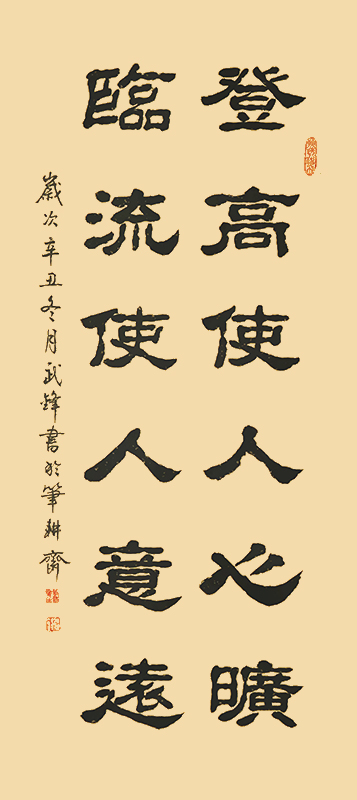 登高使人心曠
臨流使人意遠
歲次辛丑冬月武鋒書於筆耕齋